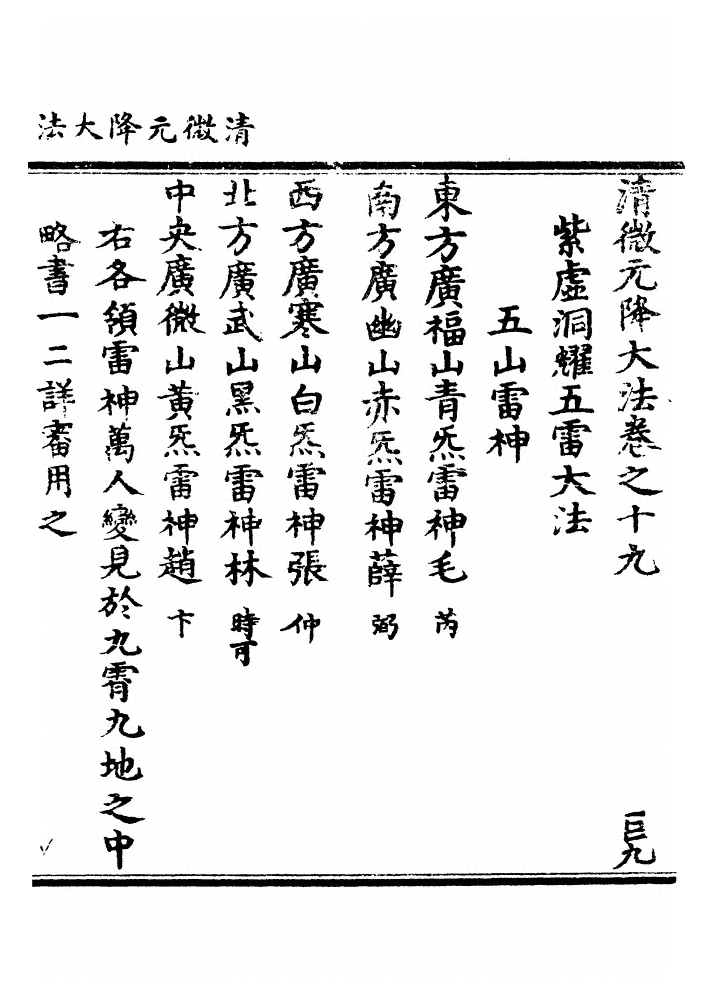 清微元降大法
清微元降大法卷之十九
巨九
紫虛洞耀五雷大法
五山雷神
東方廣福山青炁雷神毛芮
南方廣幽山赤炁雷神薛弼
西方廣寒山白炁雷神張仲
北方廣武山黑炁雷神林時可
中央廣微山黃炁雷神趙卞
右各領雷神萬人變見於九霄九地之中
略書一二詳審用之